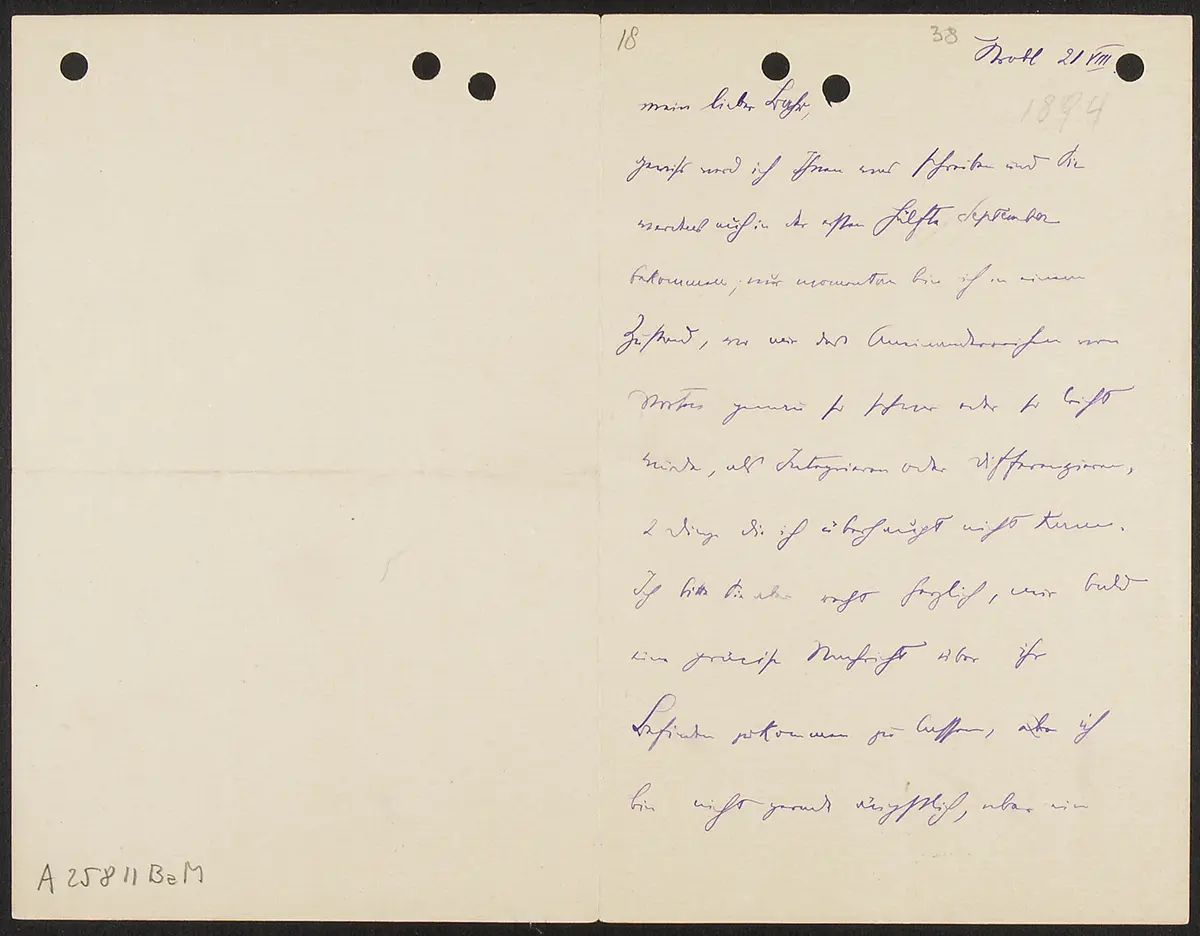 18
38
Strobl 21 VIII.
1894
mein lieber Bahr,
gewiss werd ich Ihnen was schreiben und Sie
werdens auch in der ersten Hälfte September
bekommen, nur momentan bin ich in einem
Zustand, wo mir das Aneinanderreihen von
Worten genau so schwer oder so leicht
würde, als Integrieren oder Differenzieren,
2 Dinge die ich überhaupt nicht kenne.
Ich bitte Sie aber recht herzlich, mir bald
eine präcise Nachricht über ihr
Befinden zukommen zu lassen, ich
bin nicht gerade ängstlich, aber ein
A 25811 BaM